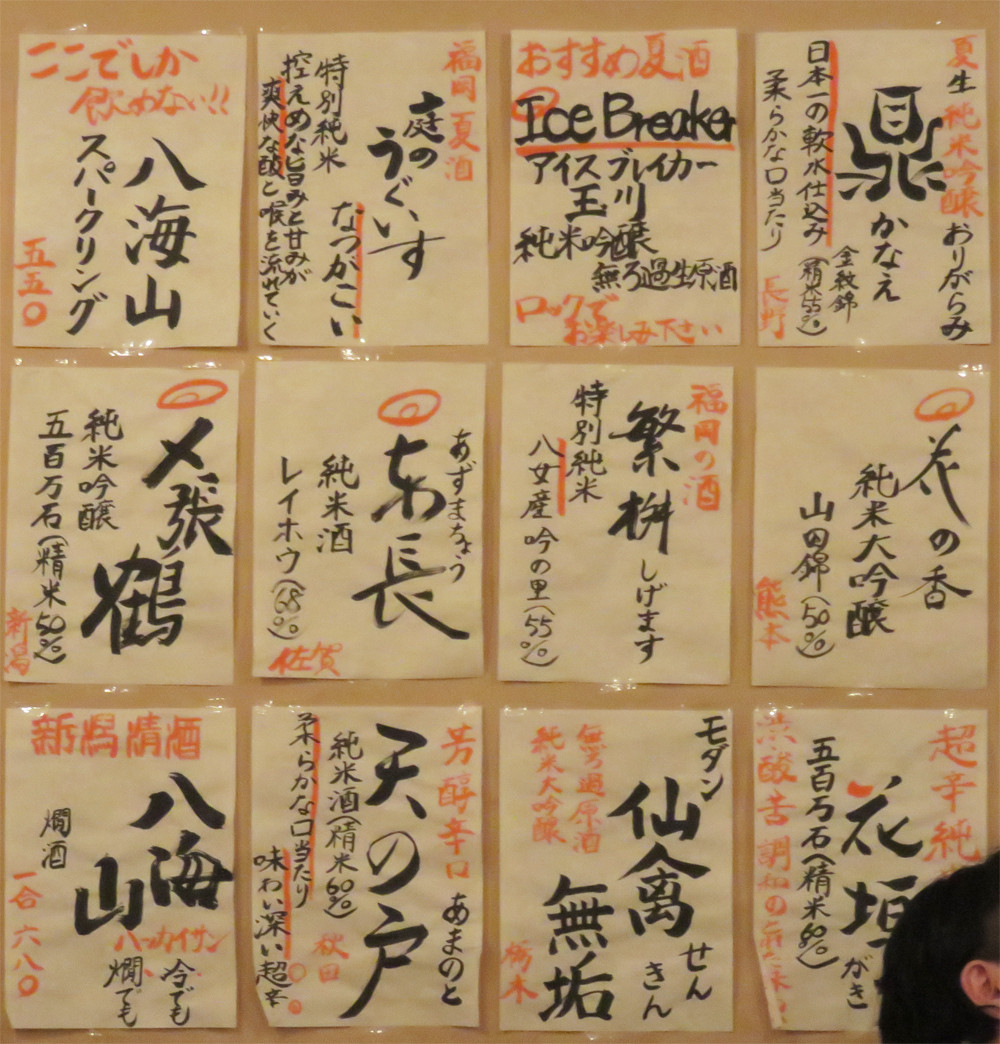 ここでしか
飲めない!!
八海山
スパークリング
五五〇
福岡夏酒
庭の
うぐいす
なつがこい
特別純米
控えめな旨みと甘みが
爽快な酸と喉を流れていく
おすすめ夏酒
Ice Breaker
アイスブレイカー
玉川
純米吟醸
無ろ過生原酒
ロックで
お楽しみ下さい
夏生純米吟醸おりがらみ
鼎かなえ
金紋錦
(精米55%)
日本一の軟水仕込み
柔らかな口当たり
長野
〆張鶴
純米吟醸
五百万石(精米50%)
新潟
あずまちょう
東長
純米酒
レイホウ(68%)
佐賀
福岡の酒
繁桝しげます
特別純米
八女産吟の里(55%)
花の香
純米大吟醸
山田錦(50%)
熊本
新潟清酒
八海
山
ハッカイサン
冷でも
燗でも
燗酒
一合六八〇
芳醇辛口あまのと
天の戸
純米酒(精米60%)
柔らかな口当たり
味わい深い超辛
秋田
モダン
仙禽
せん
きん
無垢
無ろ過原酒
純米大吟醸
栃木
超辛純
花垣
がき
五百万石(精米60%)
渋酸苦調和の